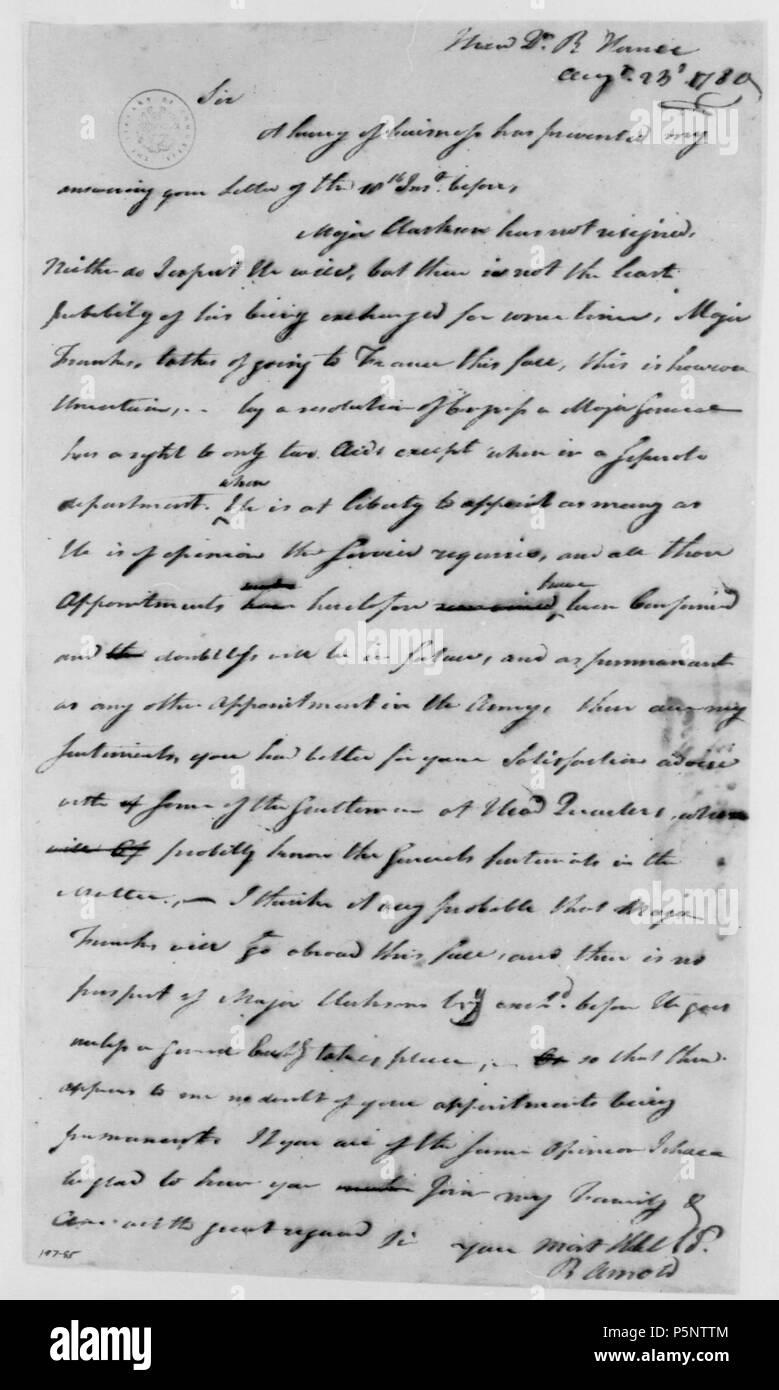 Head Qr. R House
Augt. 23d. 1780
Sir
A hurry of business has prevented my
answering your Letter of the 18th Inst. before,
Major Clarkson has not resigned,
Neither do I expect He will, but there is not the least
probibility of his being exchanged for some time, Major
Franks, talks of going to France this fall, this is however
Uncertain, .. by a resolution of Congress a Major General
has a right to only two Aids except when in a seperate
department. when He is at liberty to appoint as many as
He is of opinion the Service requires, and all those
Appointments heretofore have been Confirmed
and doubtless will be in future, and as permanant
as any other appointment in the Army, these are my
sentiments, you had better for your Satisfaction advise
with some of the Gentlemen at Head Quarters, who
will probibly know the Generals sentiments in the
Matter., — I think it very probable that Major
Franks will go abroad this fall, and there is no
prospect of Major Clarksons being exchd. before He goes
unless a general takes place, .. so that there
appears to me no doubt of your appointments being
permanent. If you are of the same Opinion I shall
be glad to have you Join my Family &
am with great regard Sir your most Hble
B Arnold
197-95
LIBRARY OF CONGRESS
alamy
Image ID: P5NTTM
www.alamy.com